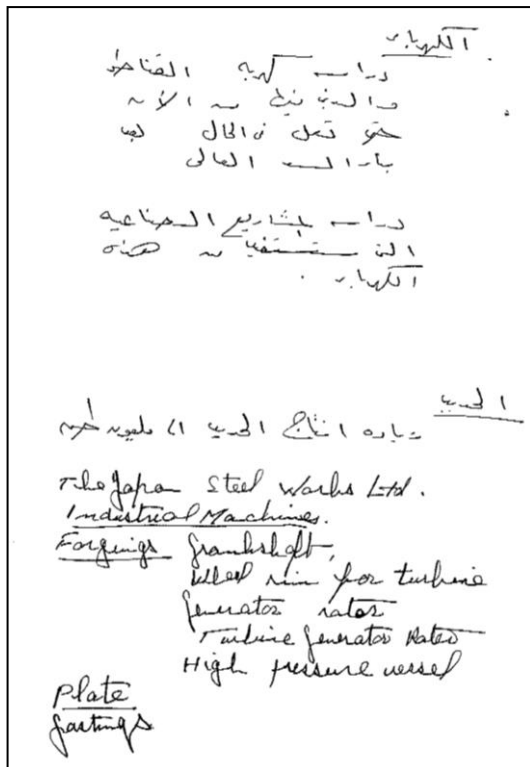 الكهرباء
دراسة كهربة القناطر
والبدء فيها من الآن
حتى تعمل فى الحال بعد
بناء السد العالى
دراسة المشاريع الصناعيه
التى ستستفيد من هذه
الكهرباء .
الحديد
زيادة انتاج الحديد الى مليون طن
The Japan Steel Works Ltd.
Industrial Machines.
Forgings Crankshaft,
rim for turbine
generator rotor
Turbine generator Rotor
High pressure vessel
Plate
Castings